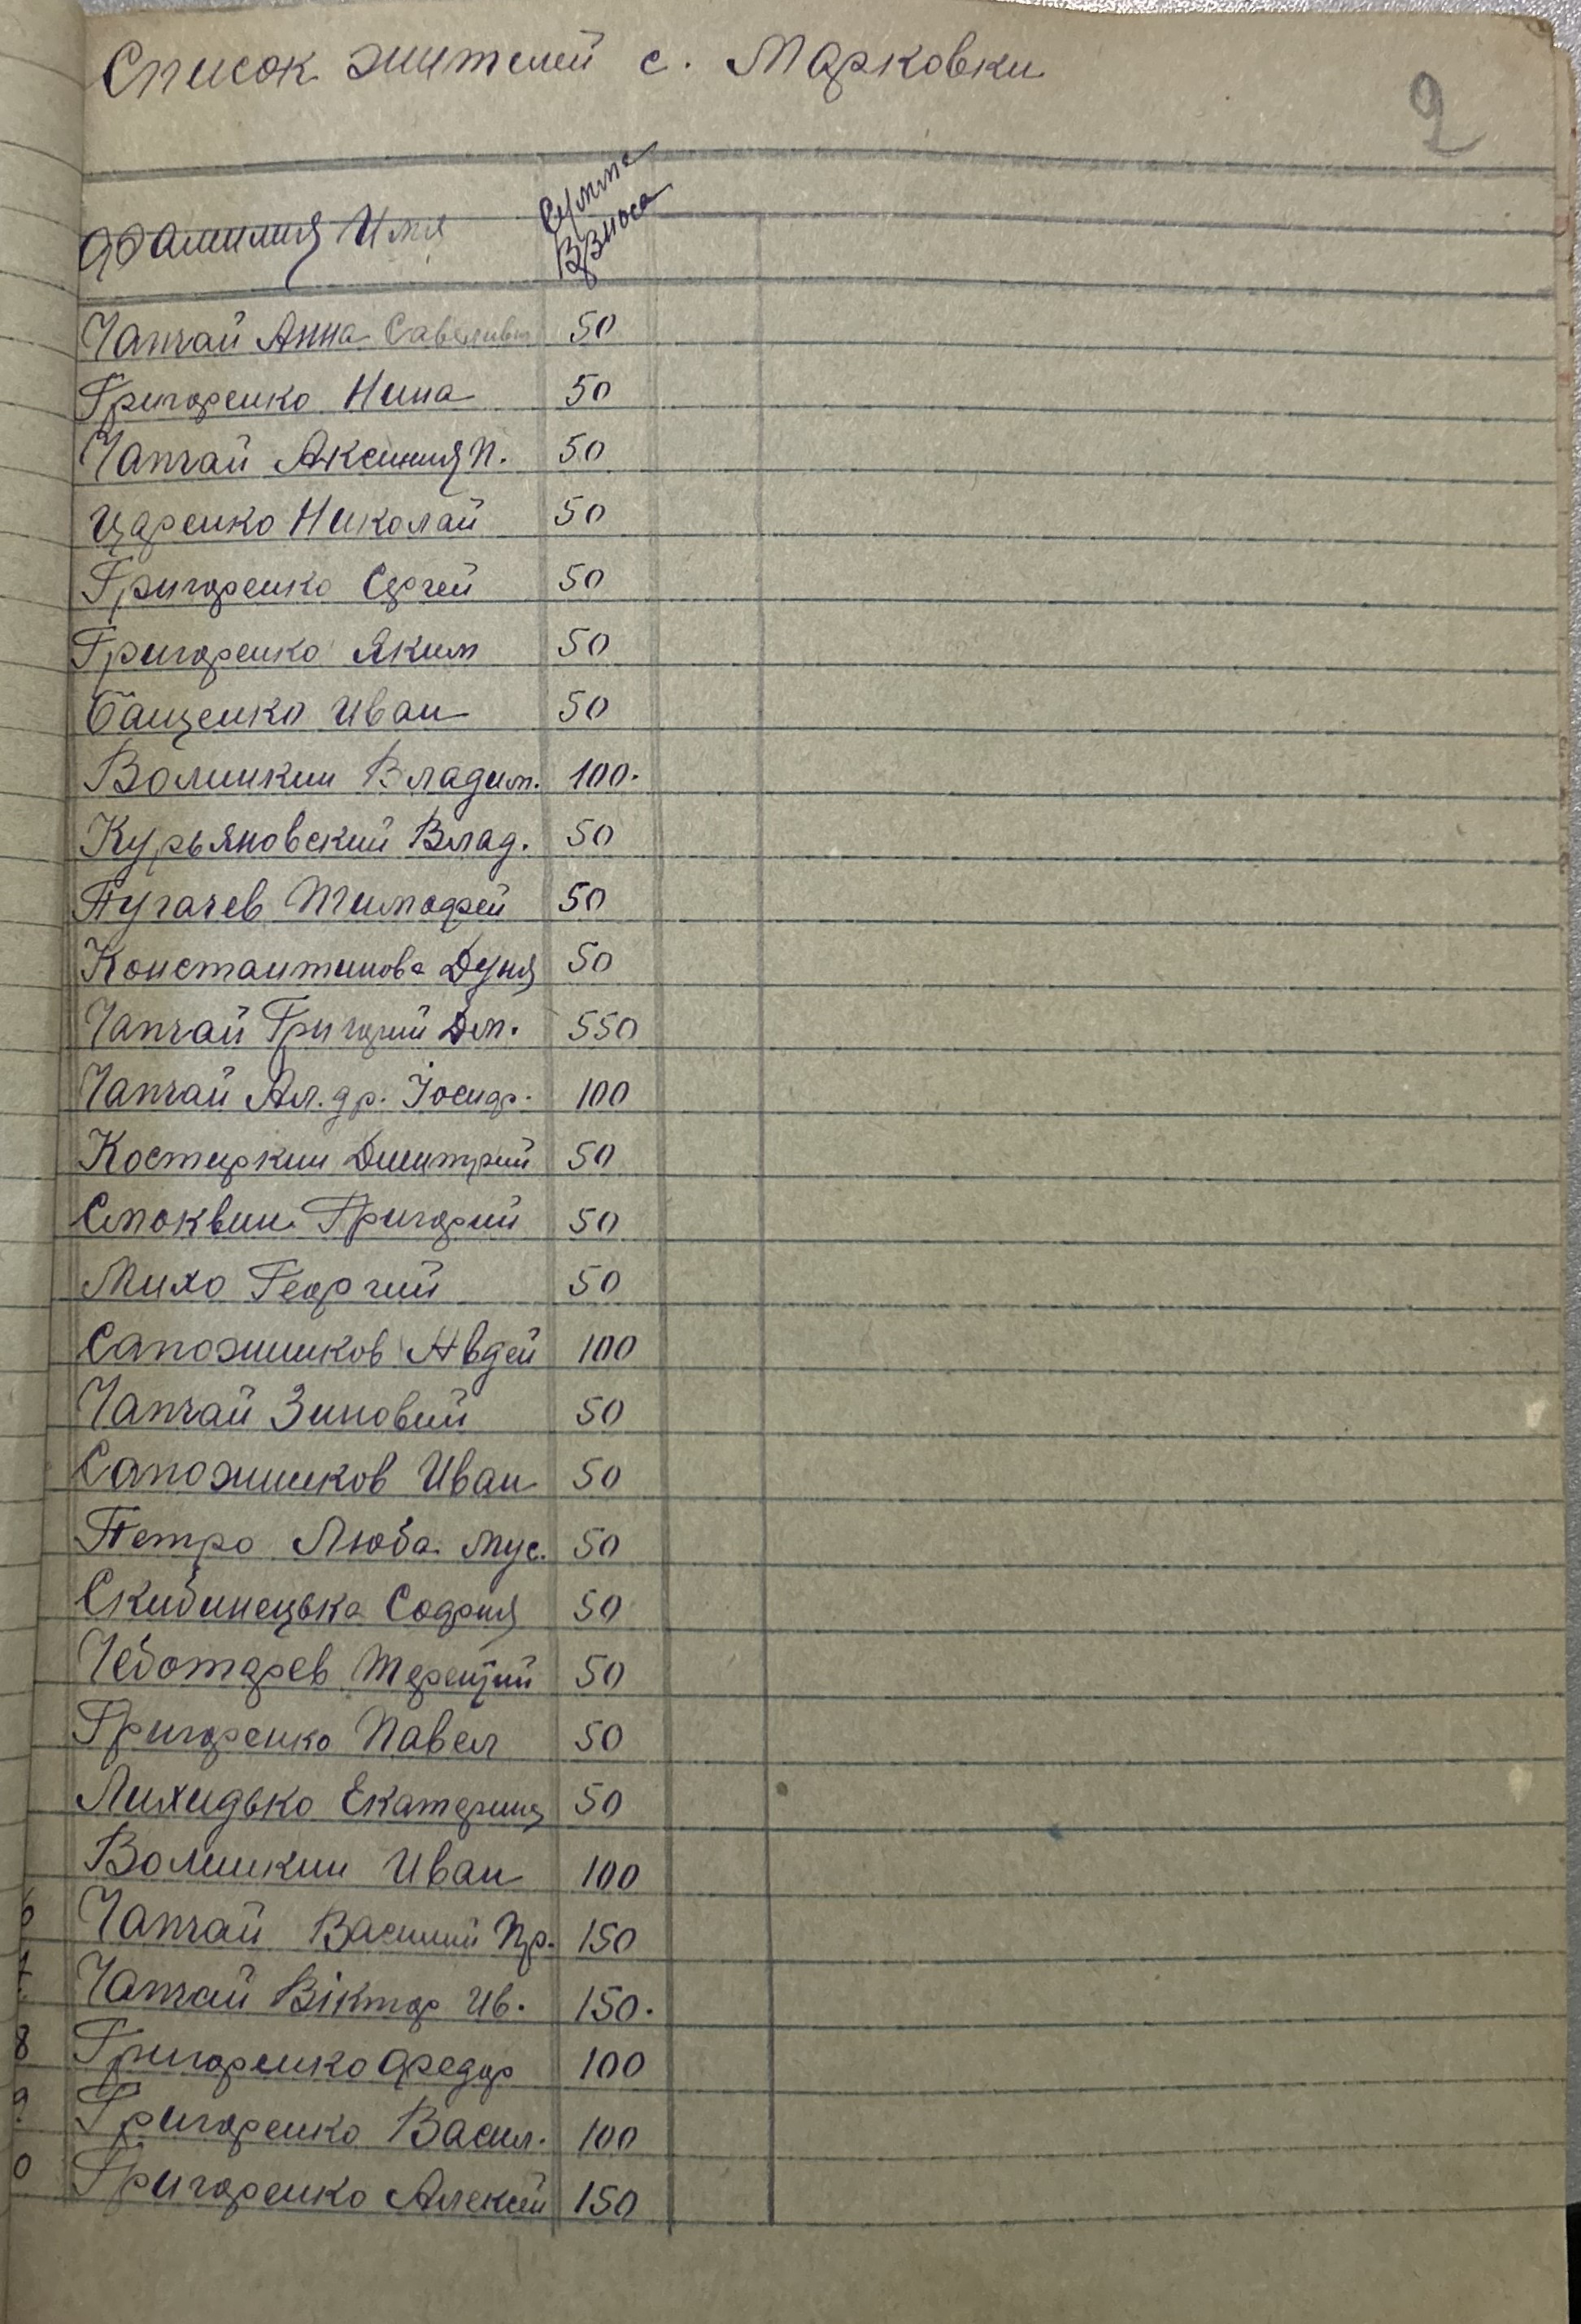 Список жителей с. Марковки
2
Фамилия Имя Сумма Взноса
Чапчай Анна Савельевн 50
Григоренко Нина 50
Чапчай Аксиния П. 50
Царенко Николай 50
Григоренко Сергей 50
Григоренко Яким 50
Бащенко Иван 50
Волинкин Владим. 100.
Курьяновский Влад. 50
Пугачев Тимофей 50
Константинова Дуня 50
Чапчай Григорий Дм. 550
Чапчай Ал.др. Іосиф. 100
Костиркин Дмитрий 50
Стоквин Григорий 50
Михо Георгий 50
Сапожников Авдей 100
Чапчай Зиновий 50
Сапожников Иван 50
Петро Люба Мус. 50
Скибинецька София 50
Чеботарев Терентий 50
Григоренко Павел 50
Лихидько Екатерина 50
Волинкин Иван 100
6 Чапчай Василий Пр. 150
7 Чапчай Віктор Ив. 150.
8 Григоренко Федор 100
9 Григоренко Васил. 100
0 Григоренко Алексей 150